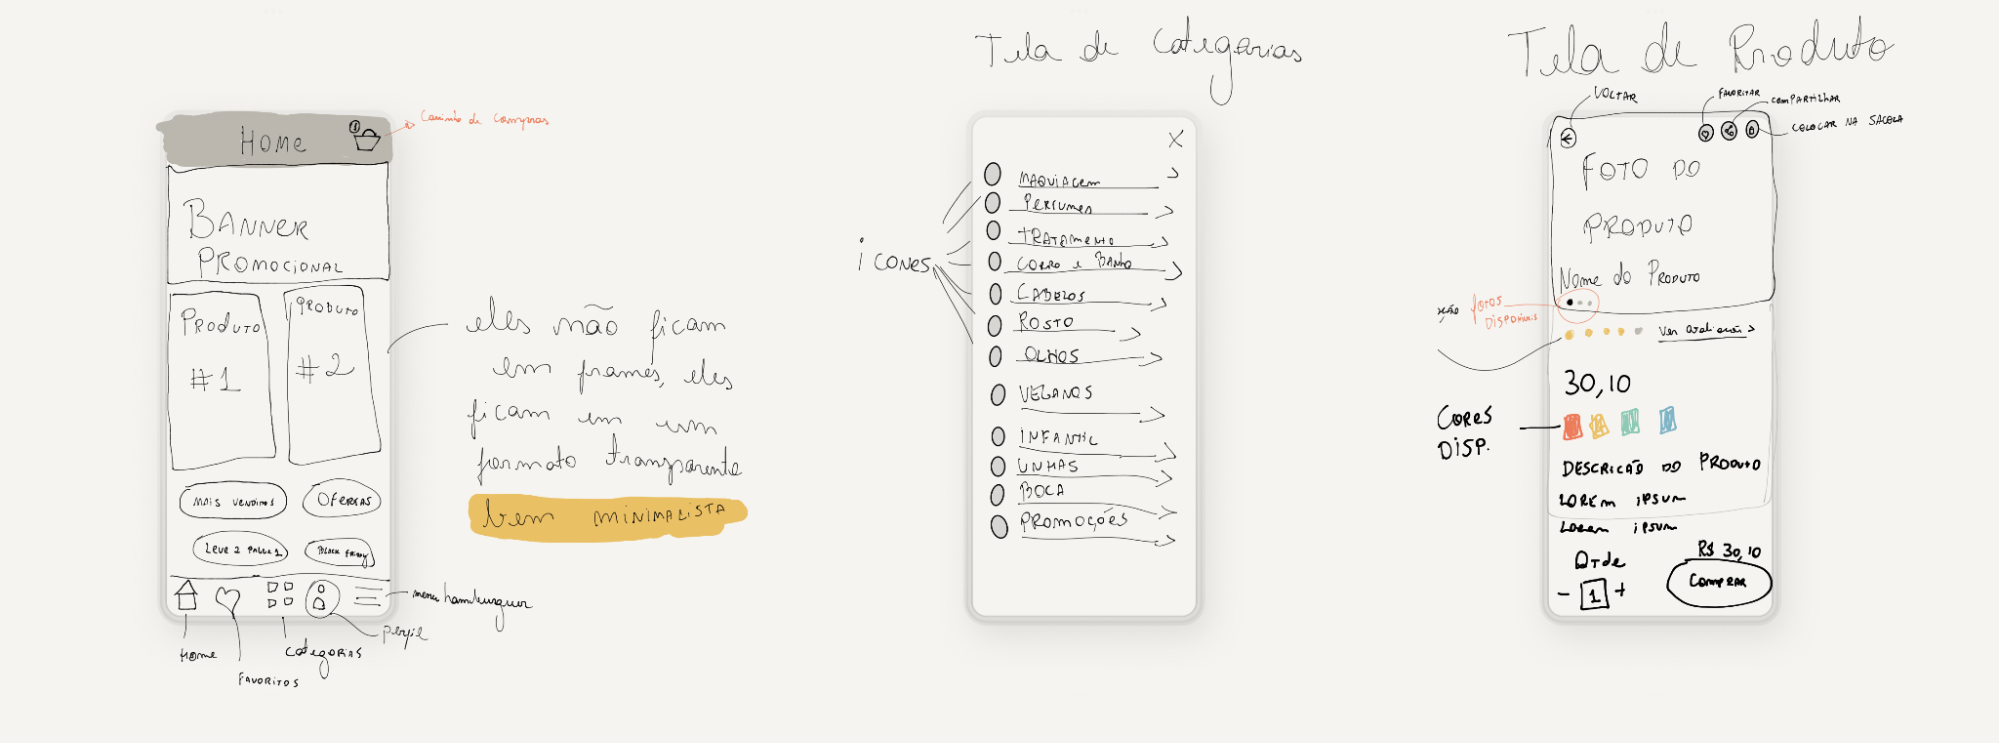 Home
1
Carrinho de compras
BANNER
PROMOCIONAL
PRODUTO
#1
PRODUTO
#2
eles não ficam
em frames, eles
ficam em um
formato transparente
bem minimalista
MAIS VENDIDOS
OFERTAS
LEVE 2 PAGUE 1
BLACK FRIDAY
menu hamburguer
perfil
Home
categorias
FAVORITOS
Tela de Categorias
X
MAQUIAGEM
PERFUMES
TRATAMENTO
CORPO E BANHO
CABELOS
ROSTO
OLHOS
VEGANOS
INFANTIL
UNHAS
BOCA
PROMOÇÕES
ICONES
Tela de Produto
VOLTAR
FAVORITAR
COMPARTILHAR
COLOCAR NA SACOLA
FOTO DO
PRODUTO
Nome do Produto
FOTOS
DISPONIVEIS
Ver avaliação >
30,10
CORES
DISP.
DESCRICÃO DO PRODUTO
LOREM IPSUM
LOREM IPSUM
QTDE
- 1 +
R$ 30,10
COMPRAR